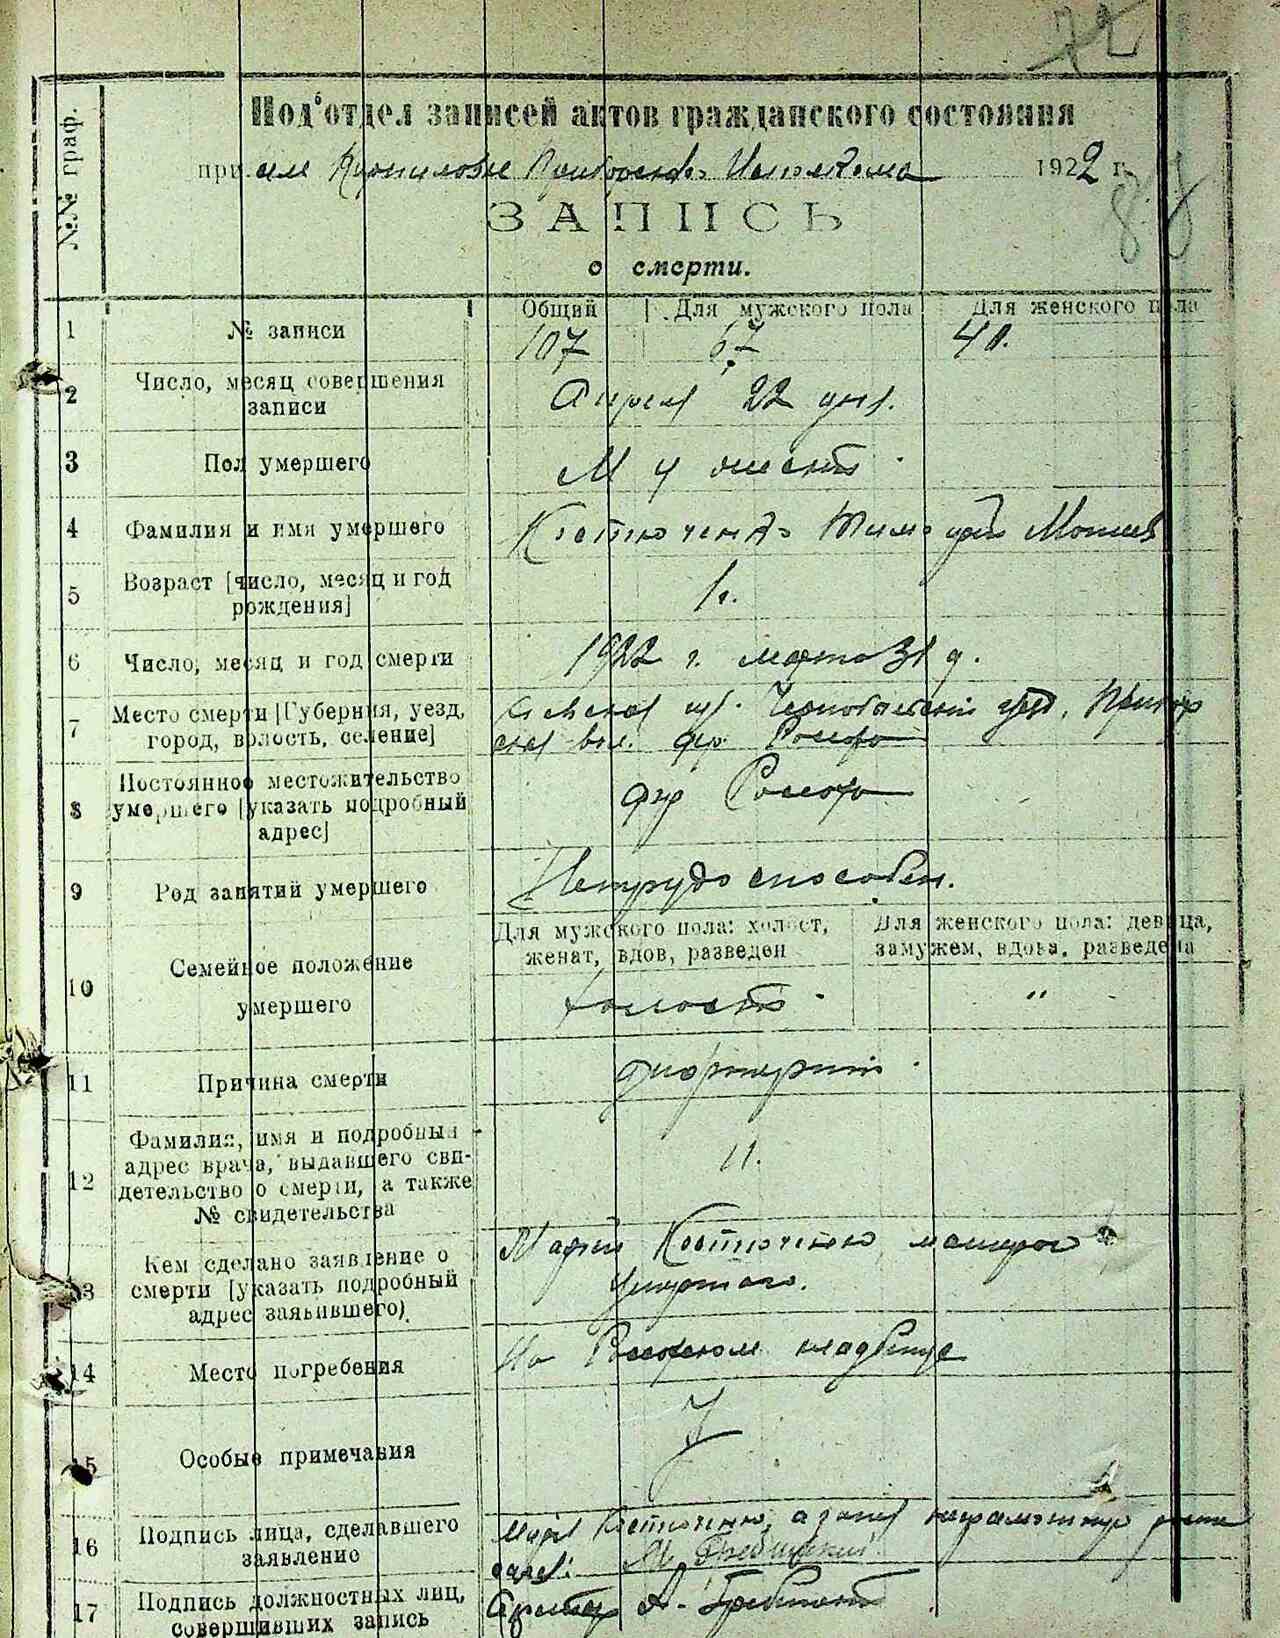 72
№№ граф.
Под'отдел записей актов гражданского состояния
при Исполкома 1922 г.
88
ЗАПИСЬ
о смерти.
Общий Для мужского пола Для женского пола
1 № записи 107 67 40.
2 Число, месяц совершения
записи Апреля 22 дня.
3 Пол умершего
4 Фамилия и имя умершего Костюченко Тимофей
5 Возраст [число, месяц и год
рождения]
6 Число, месяц и год смерти 1922 г. марта 31 д.
7 Место смерти [Губерния, уезд,
город, волость, селение] Киевская губ. Чернобыльский уезд,
вол. дер. Россоха
8 Постоянное местожительство
умершего [указать подробный
адрес] дер Россоха
9 Род занятий умершего Нетрудоспособен.
Для мужского пола: холост, Для женского пола: девица,
женат, вдов, разведен замужем, вдова, разведена
10 Семейное положение
умершего холост. "
11 Причина смерти
12 Фамилия, имя и подробный
адрес врача, выдавшего сви-
детельство о смерти, а также
№ свидетельства 11.
13 Кем сделано заявление о
смерти [указать подробный
адрес заявившего) Костюченко матерью
умершаго.
14 Место погребения На кладбище
15 Особые примечания
16 Подпись лица, сделавшего
заявление Костюченко, а за неграмотную
17 Подпись должностных лиц,
совершивших запись А.